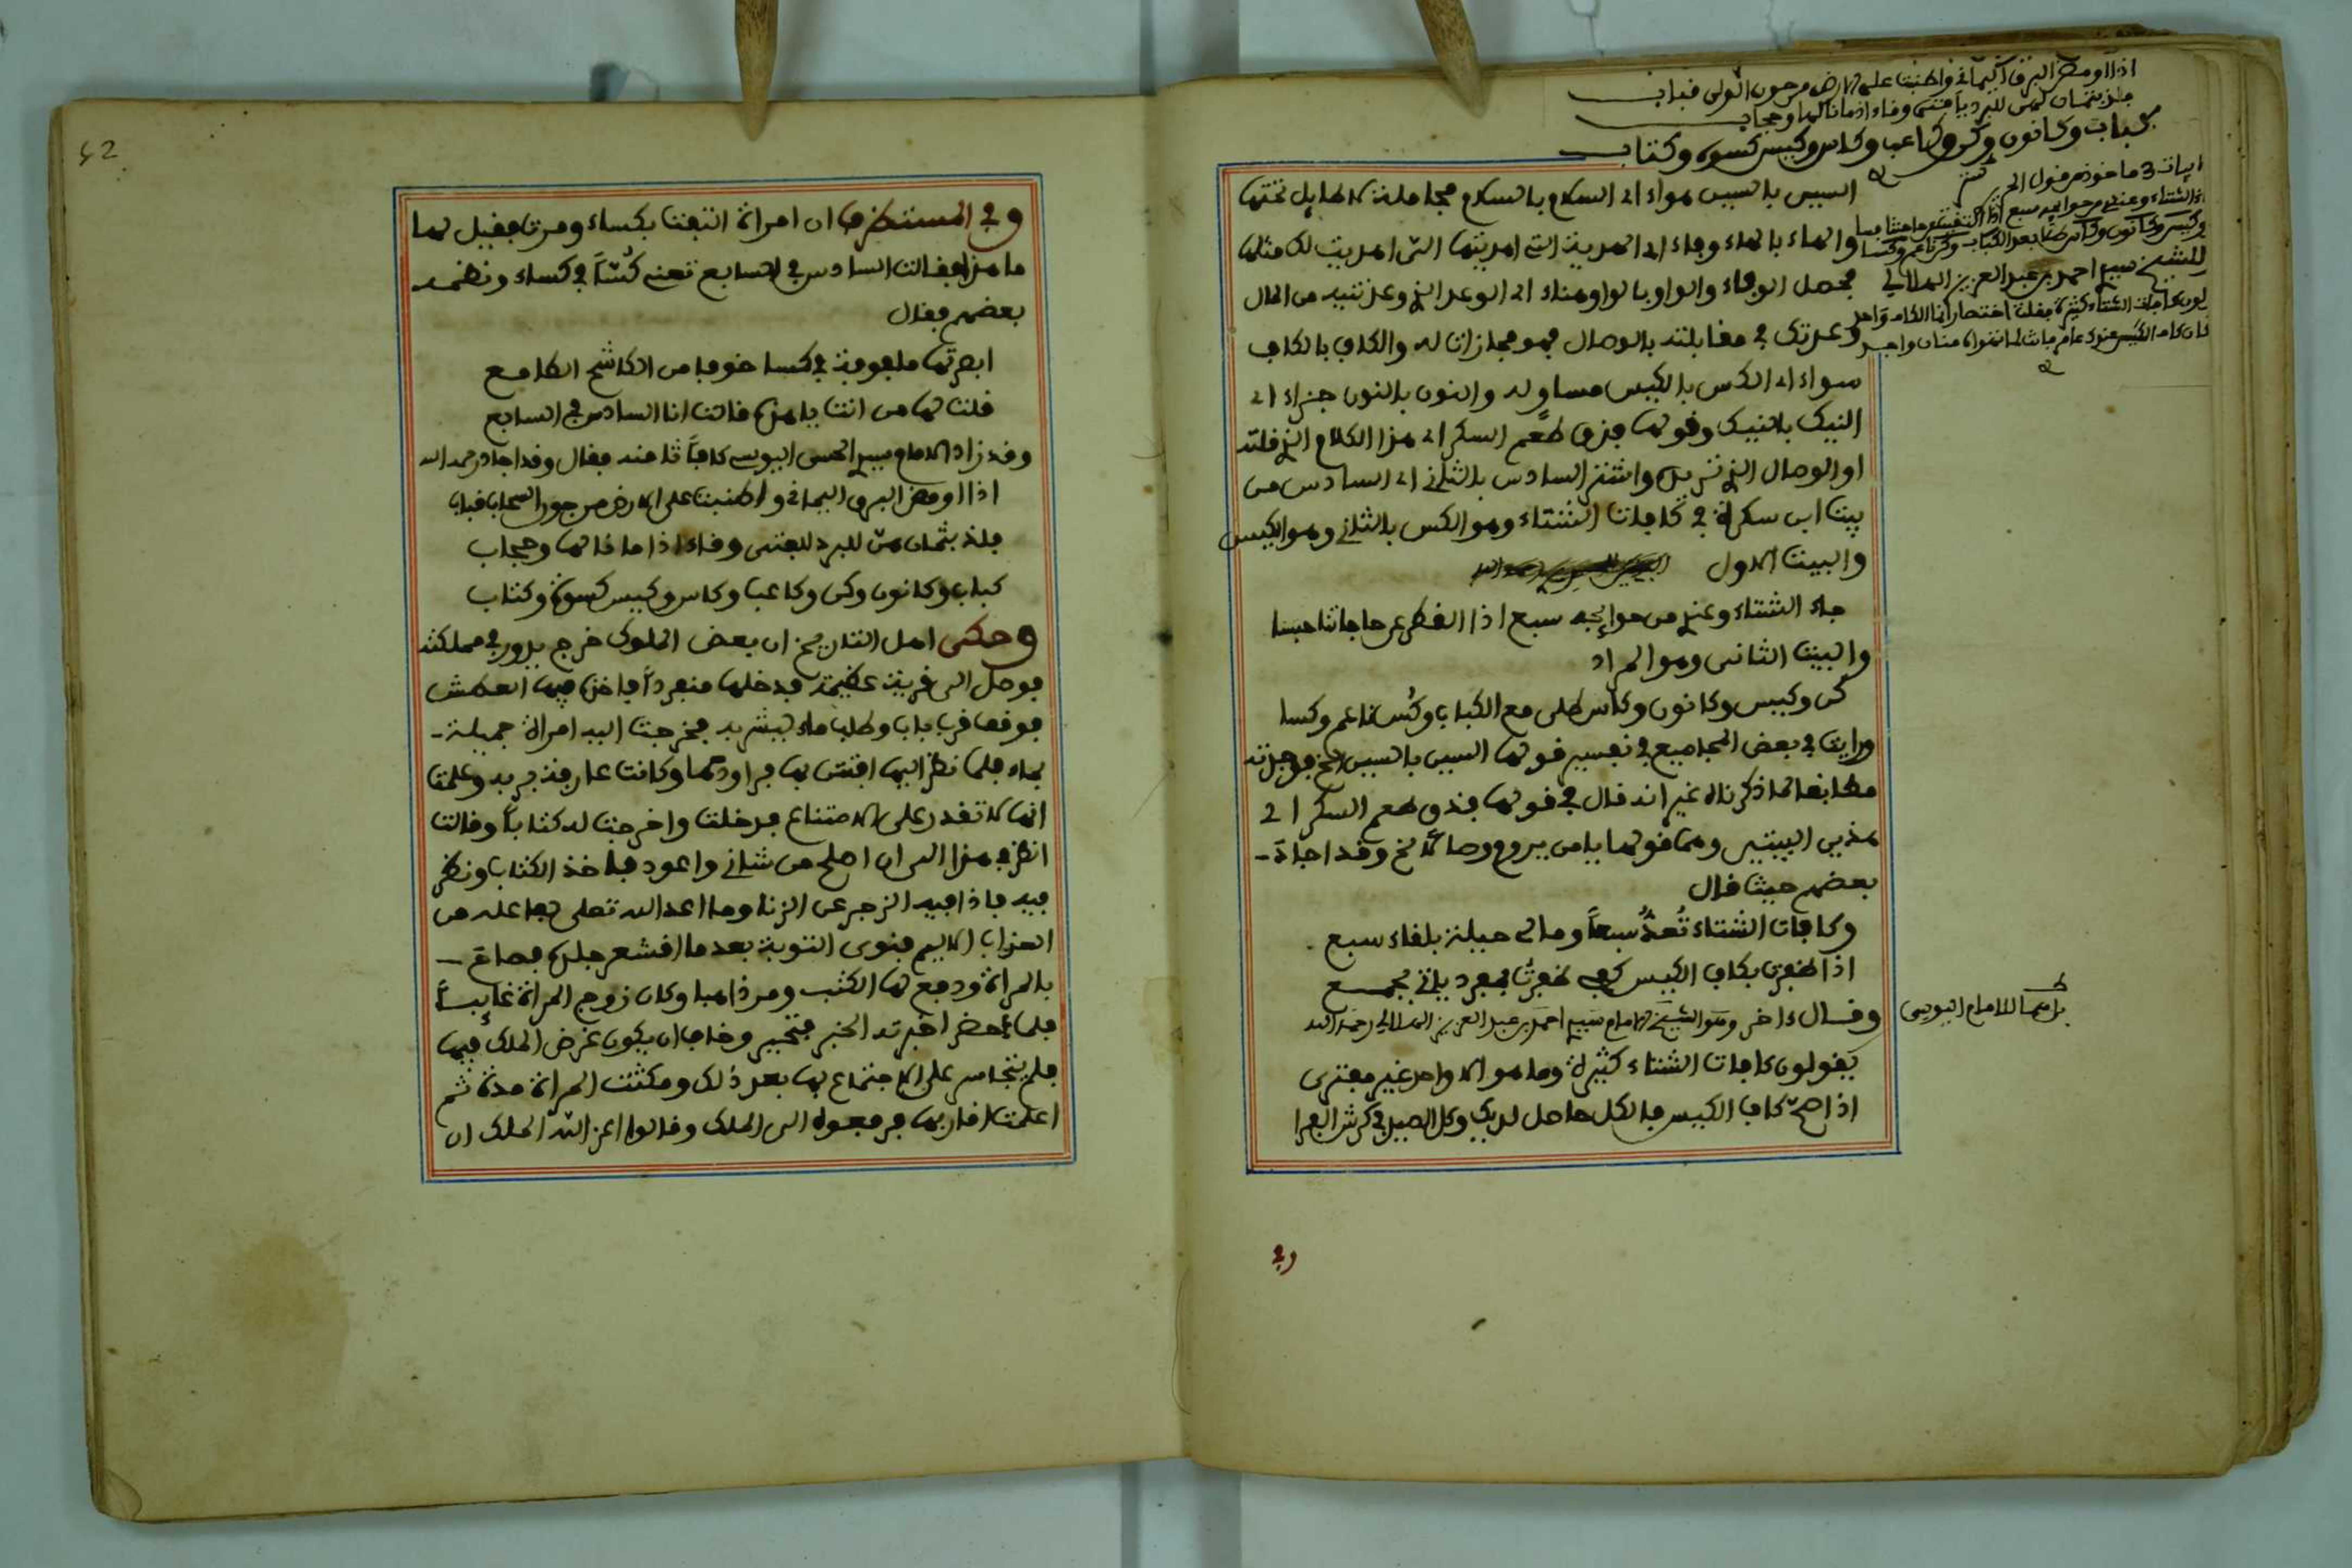 اذا اومض البرق اليماني واطنبت على الارض من جون الولي قباب
فلذ بثمان هن للبرد يا فتى وقاء اذا ما نالها وحجاب
كباب وكانون وكن وكاعب وكاس وكيس كسوة وكتاب
ابيات 3 ماخوذ من قول الحريري
جاء الشتاء وعندي من حوايجه سبع اذا القطر عن حاجاتنا حبسا
كن وكيس وكانون وكاس طلا بعد الكباب وكس ناعم وكسا
للشيخ سيدي احمد بن عبد العزيز الهلالي
يقولون كافات الشتاء كثيرة فقلت اختصارا انما الكاف واحد
السين بالسين سواء اي السلام بالسلام مجاملة لا طايل تحتها
والهاء بالهاء وفاء اي الهدية التي اهديتها التي اهديت لك مثلها
فحصل الوفاء والواو بالواو وهناء اي الوعد الذي وعدتنيه من المال
وعدتك في مقابلته بالوصال فهو مجازات له والكاف بالكاف
سواء اي الكس بالكيس مساو له والنون بالنون جزاء اي
النيك بالنيك وقولها فذق طعم السكر اي هذا الكلام الذي قلته
او الوصال الذي تريده واشتر السادس بالثاني اي السادس من
بيت ابن سكرة في كافات الشتاء وهو الكس بالثاني وهو الكيس
والبيت الاول
جاء الشتاء وعندي من حوايجه سبع اذا القطر عن حاجاتنا حبسا
والبيت الثاني وهو المراد
كن وكيس وكانون وكاس طلى مع الكباب وكُس ناعم وكسا
ورايت في بعض المجاميع في تفسير قولها السين بالسين الخ فوجدته
مطابقا لما ذكرناه غير انه قال في قولها فذق طعم السكر اي
هذين البيتين وهما قولها يا من يروم وصالنا الخ وقد اجاد
بعضهم حيث قال
وكافات الشتاء تُعَدُّ سبعاً وما لي حيلة بلقاء سبع
اذا ظفرت بكاف الكيس كفي ظفرتُ بمفرد ياتي بجمع
وقال ءاخر وهو الشيخ الامام سيدي احمد بن عبد العزيز الهلالي رحمه الله
بل هما للامام اليوسي
يقولون كافات الشتاء كثيرة وما هو الا واحد غير مفترى
اذا صح كاف الكيس فالكل حاصل لديك وكل الصيد في كرش الفرا
وفي
62
وفي المستطرف ان امراة التفت بكساء ومرت فقيل لها
ما هذا فقالت السادس في السابع تعني كُسّاً في كساء ونظمه
بعضهم فقال
ابصرتها ملفوفة في كسا خوفا من الكاشح الكامع
قلت لها من انت يا هذه قالت انا السادس في السابع
وقد زاد الامام سيدي الحسن اليوسي كافاً ثامنه فقال وقد اجاد رحمه الله
اذا اومض البرق اليماني واطنبت على الارض من جون السحاب قباب
فلذ بثمان هن للبرد للفتى وقاء اذا ما نالها وحجاب
كباب وكانون وكن وكاعب وكاس وكيس كسوة وكتاب
وحكى اهل التاريخ ان بعض الملوك خرج يدور في مملكته
فوصل الى قرية عظيمة فدخلها منفرداً فاخذه فيها العطش
فوقف قرب باب وطلب ماء ليشربه فخرجت اليه امراة جميلة
بماء فلما نظر اليها افتتن بها فراودها وكانت عارفة به وعلمت
انها لا تقدر على الامتناع فدخلت واخرجت له كتاباً وقالت
انظر في هذا الى ان اصلح من شاني واعود فاخذ الكتاب ونظر
فيه فاذا فيه الزجر عن الزنا وما اعد الله تعلى لفاعله من
العذاب الاليم فنوى التوبة بعدما اقشعر جلده فصاح
بالمراة ودفع لها الكتب ومر ذاهبا وكان زوج المراة غايباً
فلما حضر اخبرته الخبر فتحير وخاف ان يكون غرض الملك فيها
فلم يتجاسر على الاجتماع بها بعد ذلك ومكثت المراة مدة ثم
اعلمت اقاربها فرفعوه الى الملك وقالوا اعز الله الملك ان